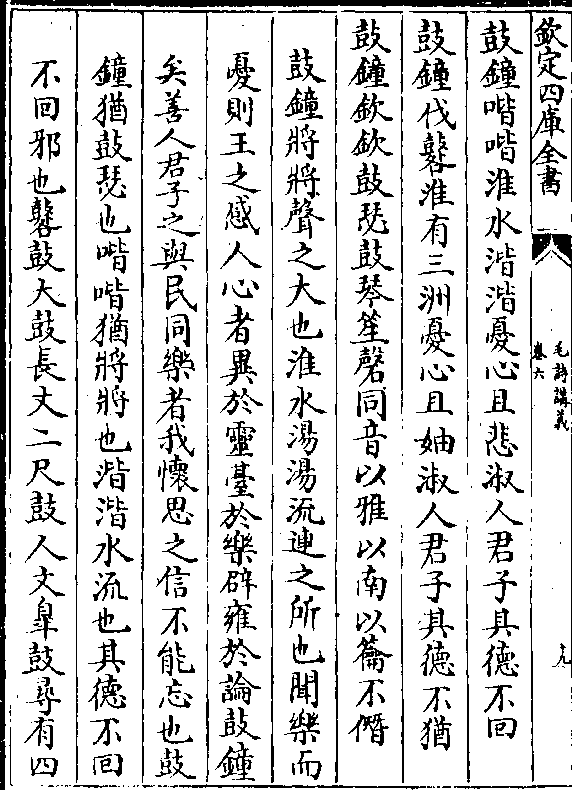 欽定四庫全書
毛詩講義
卷六
九
鼓鐘喈喈淮水湝湝憂心且悲淑人君子其德不回
鼓鐘伐鼛淮有三洲憂心且妯淑人君子其德不猶
鼓鐘欽欽鼓瑟鼓琴笙磬同音以雅以南以籥不僭
鼓鐘將將聲之大也淮水湯湯流連之所也聞樂而
憂則王之感人心者異於靈臺於樂辟雍於論鼓鐘
矣善人君子之與民同樂者我懷思之信不能忘也鼓
鐘猶鼓瑟也喈喈猶將將也湝湝水流也其德不回
不回邪也鼛鼓大鼓長丈二尺鼓人文皐鼓尋有四